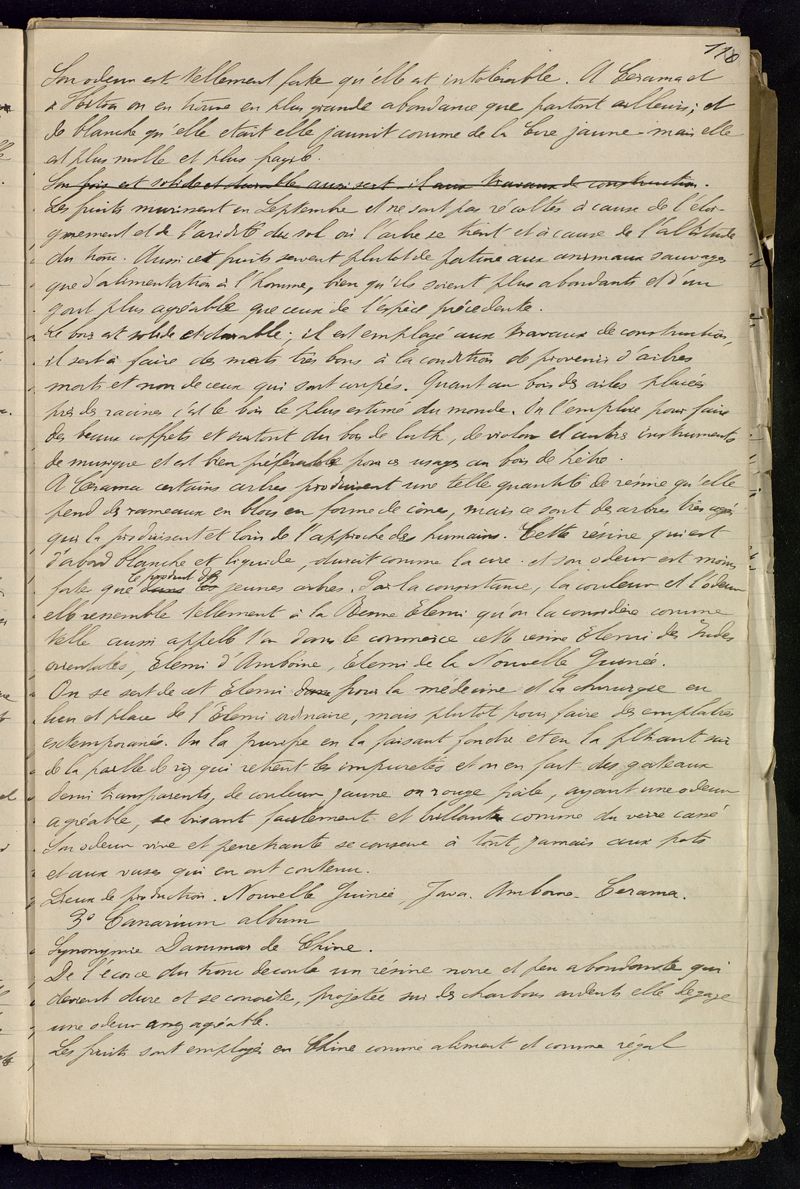 118
Son odeur est tellement forte qu'elle est intolérable. A Cerama et
à on en trouve en plus grande abondance que partout ailleurs; et
de blanche qu'elle était elle jaunit comme de la Cire jaune mais elle
est plus molle et plus fragile.
Son bois est solide et durable aussi sert-il aux travaux de construction.
Les fruits murissent en Septembre et ne sont pas récoltés à cause de l'éloi-
gnement et de l'aridité du sol où l'arbre se tient et à cause de l'altitude
du tronc. Aussi ces fruits servent plutot de pature aux animaux sauvages
que d'alimentation à l'homme, bien qu'ils soient plus abondants et d'un
gout plus agréable que ceux de l'espèce précédente.
Le bois est solide et durable; il est employé aux travaux de construction,
il sert à faire des mats très bons à la condition de provenir d'arbres
morts et non de ceux qui sont coupés. Quant au bois des ailes placées
près des racines c'est le bois le plus estimé du monde. On l'emploie pour faire
des beaux coffrets et surtout du bois de luth, de violon et autres instruments
de musique et est bien préférable pour ces usages au bois de hêtre.
A Cerama certains arbres produisent une telle quantité de résine qu'elle
pend des rameaux en blocs en forme de cônes, mais ce sont des arbres très agés
qui la produisent et loin de l'approche des humains. Cette résine qui est
d'abord blanche et liquide, durcit comme la cire et son odeur est moins
forte que le produit des jeunes arbres. Par la consistance, la couleur et l'odeur
elle ressemble tellement à la Resine Elemi qu'on la considère comme
telle aussi appelle t'on dans le commerce cette resine Elemi des Indes
orientales, Elemi d'Amboine, Elemi de la Nouvelle Guinée.
On se sert de cet Elemi pour la médecine et la chirurgie en
lieu et place de l'Elemi ordinaire, mais plutôt pour faire des emplatres
extemporanés. On la purifie en la faisant fondre et en la filtrant sur
de la paille de riz qui retient les impuretés et on en fait des gateaux
demi transparents, de couleur jaune ou rouge pale, ayant une odeur
agréable, se brisant facilement et brillants comme du verre cassé
Son odeur vive et penetrante se conserve à tout jamais aux pots
et aux vases qui en ont contenu.
Lieux de production. Nouvelle Guinée, Java. Amboine. Cerama.
3º Canarium album
Synonymie Dammar de Chine.
De l'écorce du tronc decoule un résine noire et peu abondante qui
devient dure et se concrète, projetée sur des charbons ardents elle degage
une odeur agréable.
Les fruits sont employés en Chine comme aliment et comme régal